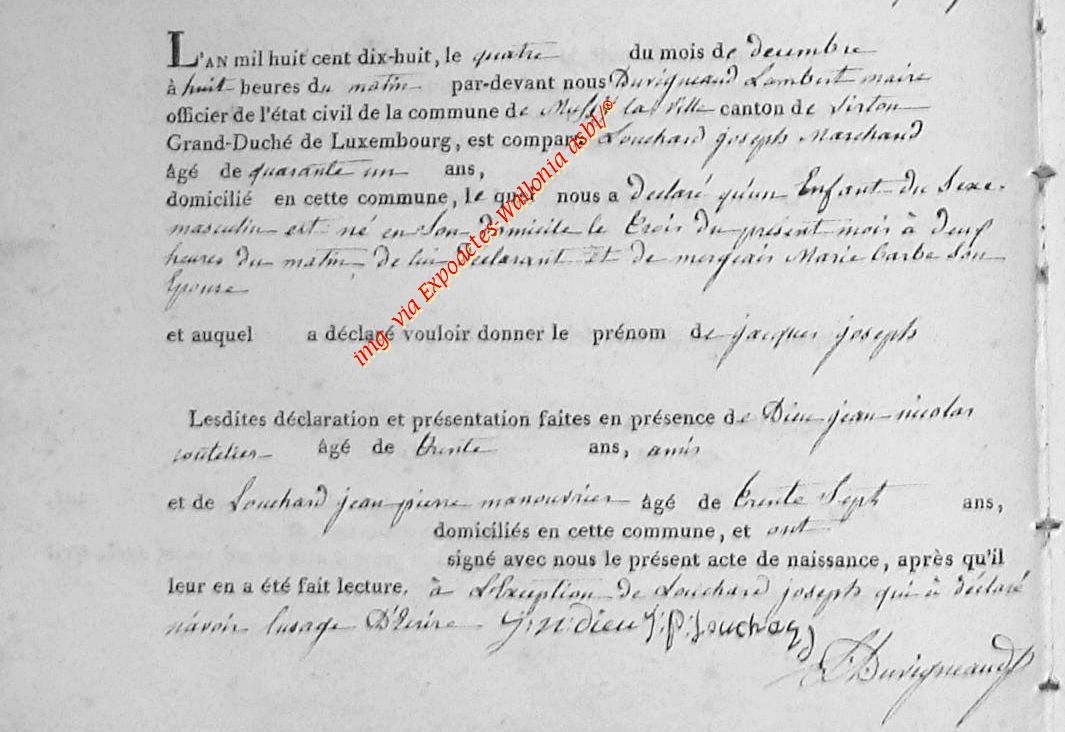 L'AN mil huit cent dix-huit, le quatre du mois de decembre
à huit heures du matin par-devant nous Duvigneaud Lambert maire
officier de l'état civil de la commune de la Ville canton de Virton
Grand-Duché de Luxembourg, est comparu Louchard joseph Marchand
âgé de quarante un ans,
domicilié en cette commune, le quel nous a declaré qu'un Enfant du Sexe
masculin est né en Son domicile le trois du present mois à deux
heures du matin de lui declarant Et de Marie barbe Son
Epouse
et auquel a déclaré vouloir donner le prénom de jacques joseph
Lesdites déclaration et présentation faites en présence de Dieu jean nicolas
coutelier âgé de trente ans, amis
et de Louchard jean pierre manouvrier âgé de trente Sept ans,
domiciliés en cette commune, et ont
signé avec nous le présent acte de naissance, après qu'il
leur en a été fait lecture, à L'Exception de Louchard joseph qui à déclaré
n'avoir lusage D'Ecrire J: N: dieu J: P: Louchard
Duvigneaud
img via Expoactes-Wallonia asbl/©